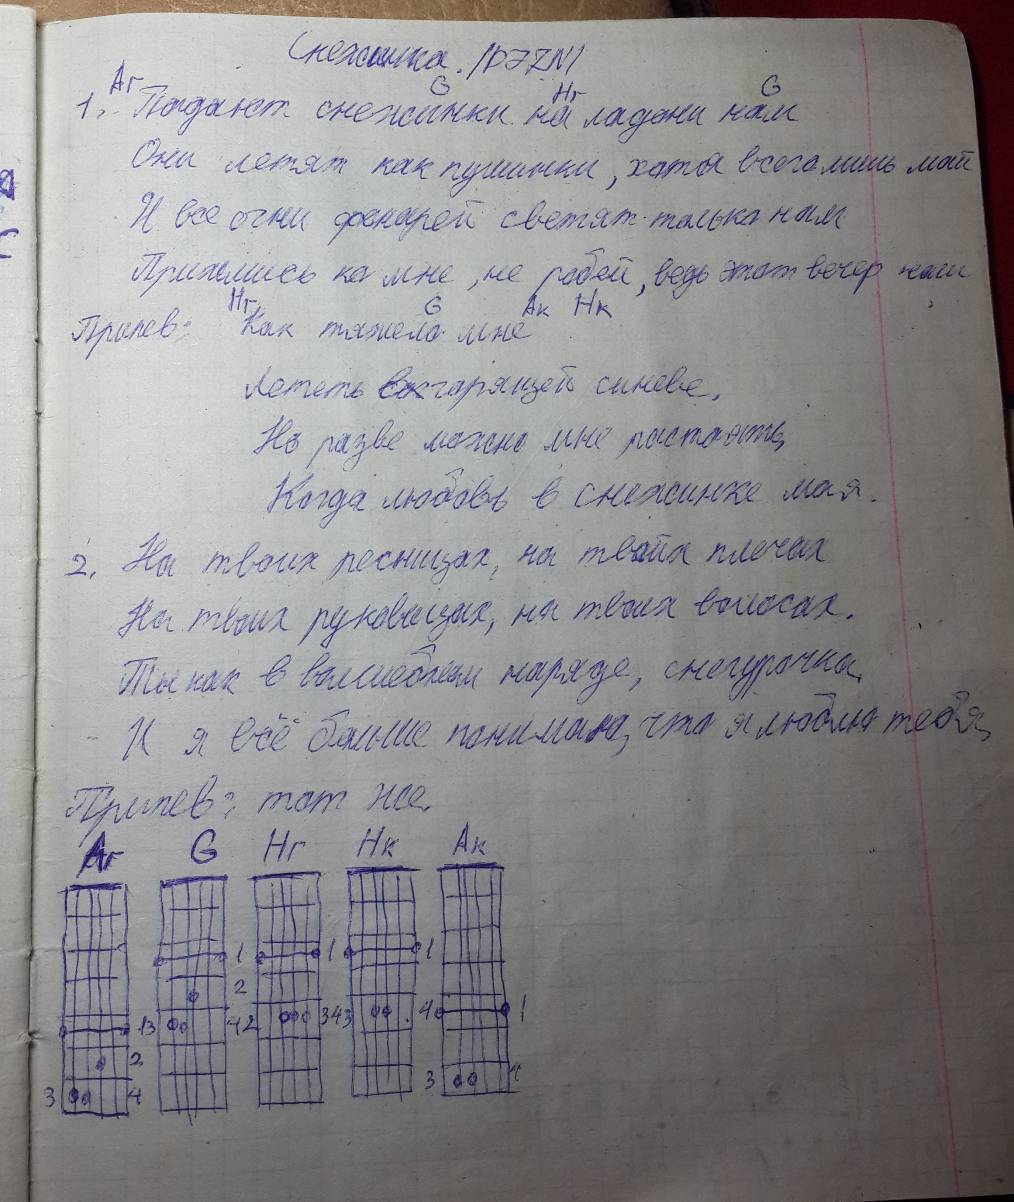 Снежинка.
Аг G Нг G
1. Падают снежинки на ладони нам
Они летят как пушинки, хотя всего лишь май
И все огни фонарей светят только нам
Прижмись ко мне, не робей, ведь этот вечер наш
Нг G Ак Нк
Припев: Как тяжело мне
Лететь в горящей синеве,
Но разве можно мне растаять,
Когда любовь в снежинке моя.
2. На твоих ресницах, на твоих плечах
На твоих рукавицах, на твоих волосах.
Ты как в волшебном наряде, снегурочка,
И я всё больше понимаю, что я люблю тебя,
Припев: тот же.
Аг G Нг Нк Ак
1 1 1
2
13 42 343 4 1
2
3 4 3 4